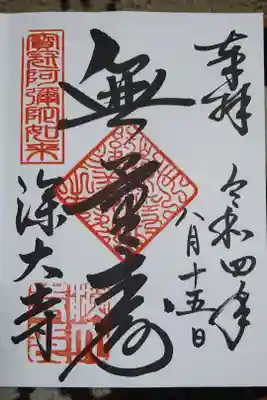 奉拝
令和四年
八月十五日
無量壽
寳冠阿彌陀如来
深大寺